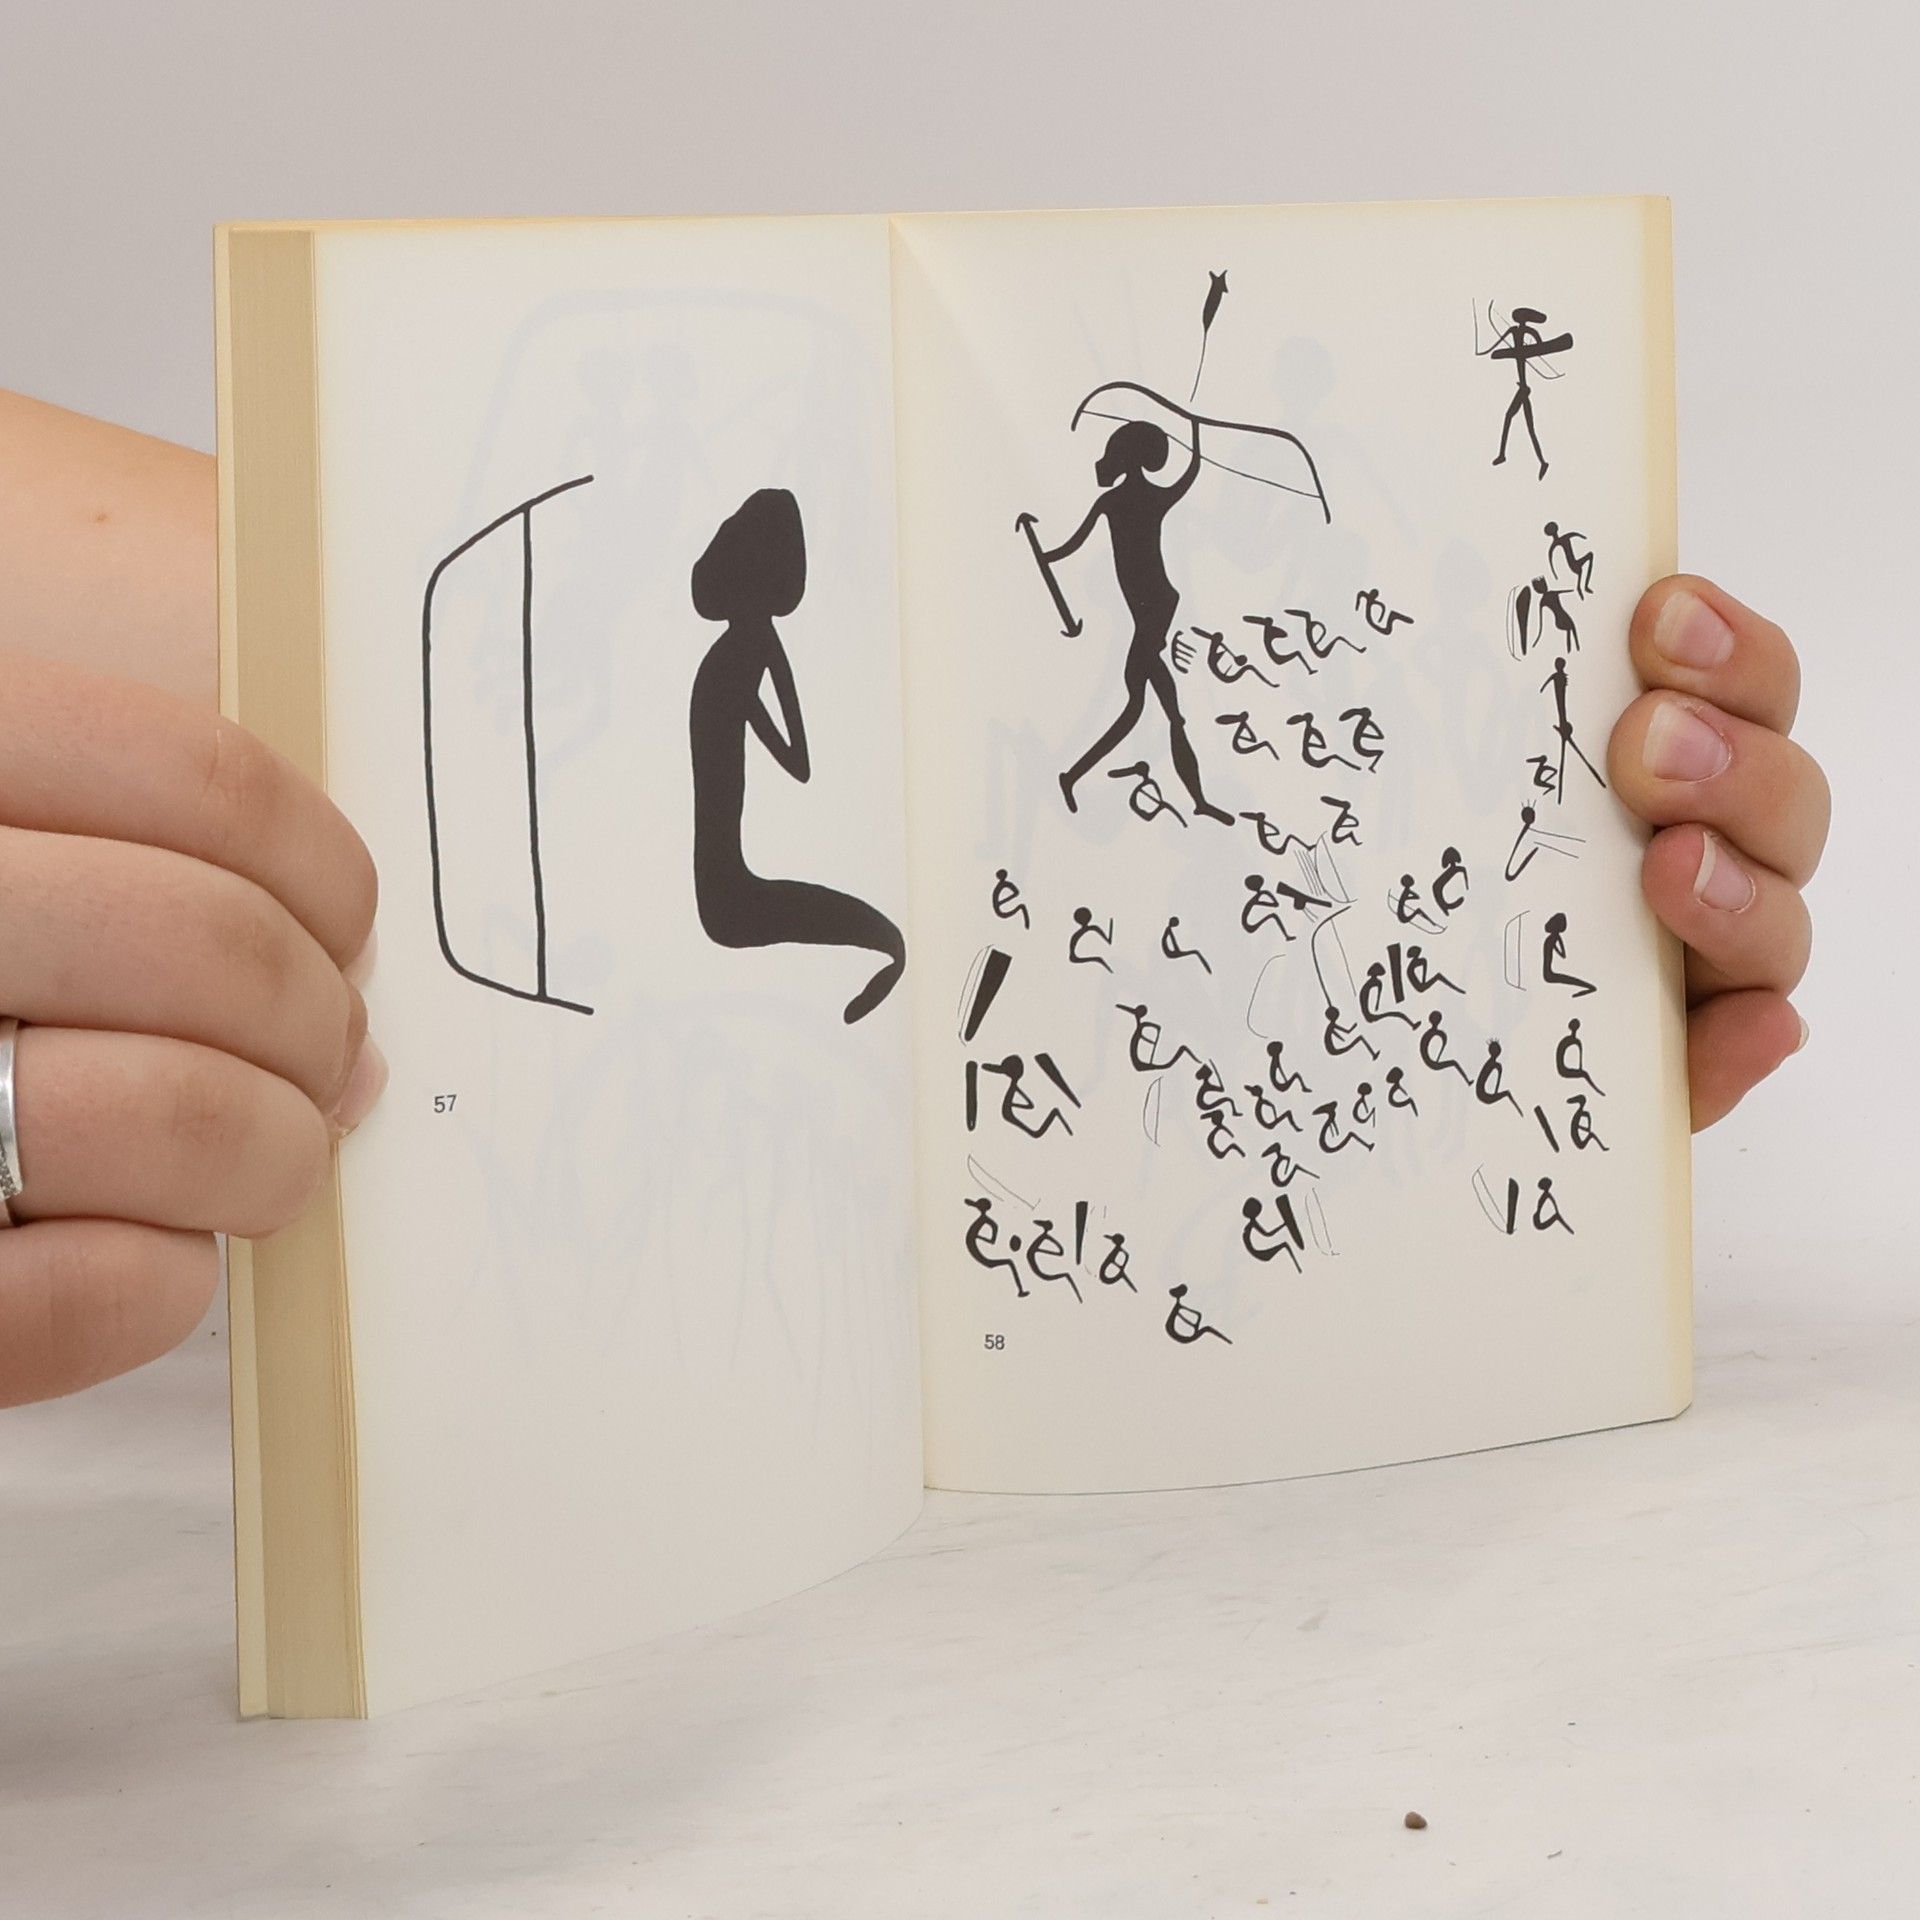 57
58